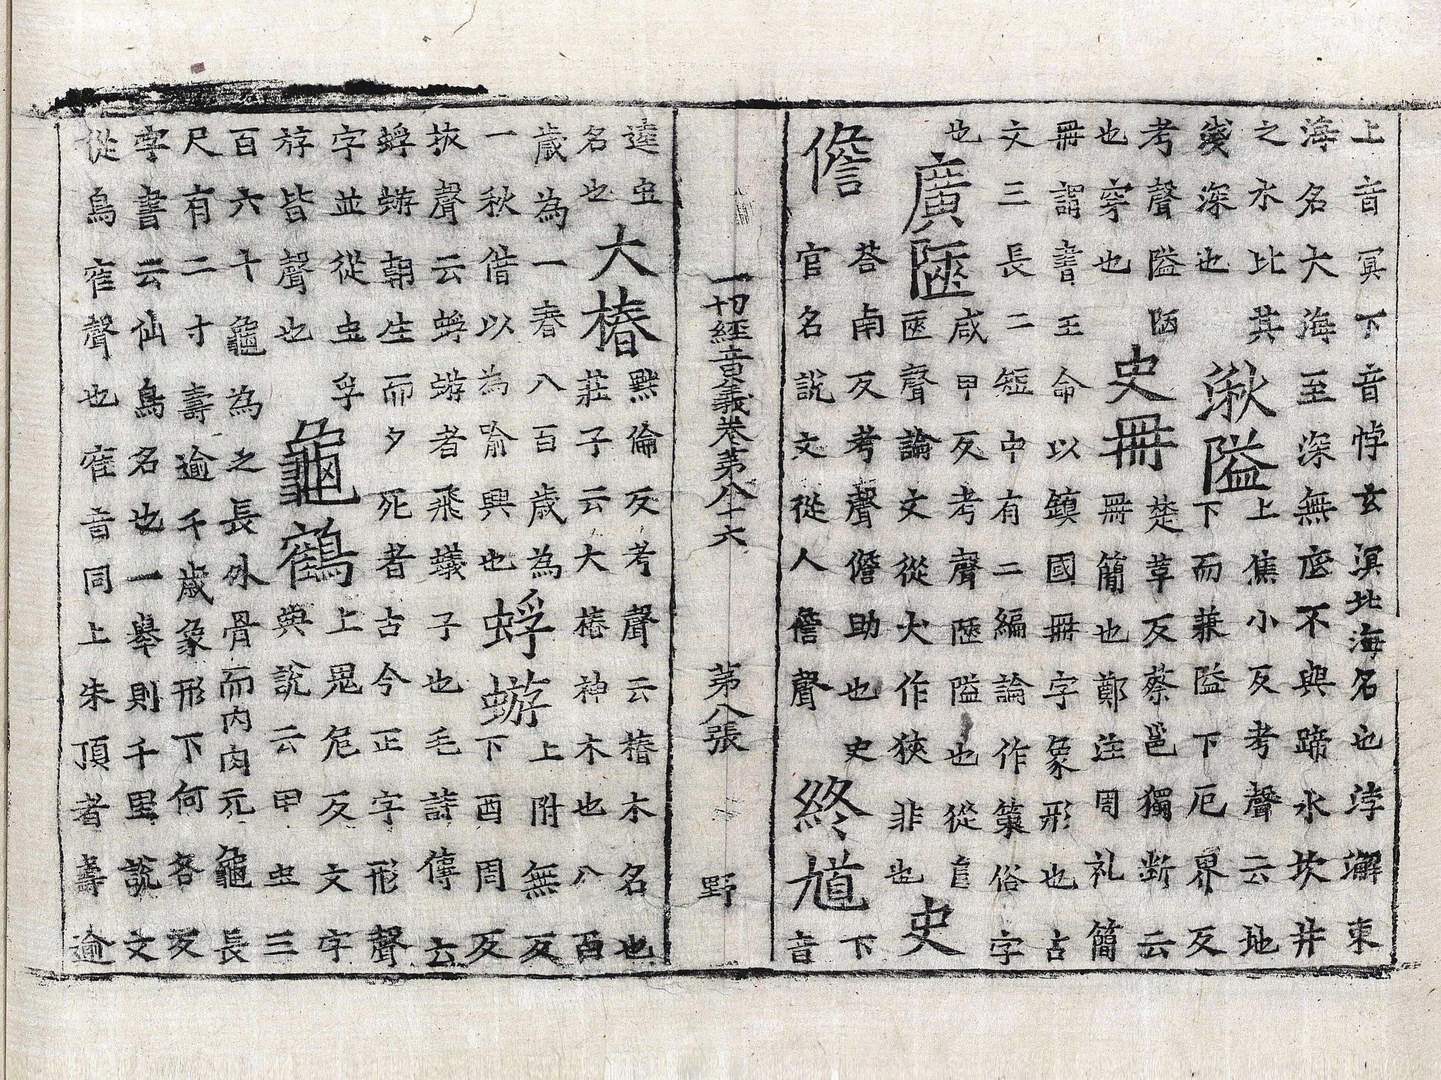 上音冥下音悖玄溟北海名也浡澥東
海名大海至深無底不與蹄水坎井
之水比其
淺深也
湫隘
上焦小反考聲云地
下而兼隘下厄界反
考聲隘陋
也窄也
史冊
楚革反蔡邕獨断云
冊簡也鄭注周礼簡
冊謂書王命以鎮國冊字象形也古
文三長二短中有二編論作策俗字
也
廣陿
咸甲反考聲陿隘也從𨸏
匧聲論文從犬作狹非也
史
儋
荅南反考聲儋助也史
官名說文從人詹聲
終馗
下
音
一切經音義卷第八十六 第八張 野
逵虫
名也
大椿
黜倫反考聲云椿木名也
莊子云大椿神木也八百
歳為一春八百歳為
一秋借以為喻興也
蜉蝣
上附無反
下酉周反
拔聲云蜉蝣者飛蟻子也毛詩傳云
蜉蝣朝生而夕死者古今正字形聲
字並從虫孚
斿皆聲也
龜鶴
上晃危反文字
典說云甲虫三
百六十龜為之長外骨而内肉元龜長
尺有二寸壽逾千歳象形下何各反
字書云仙鳥名也一舉則千里說文
從鳥隺聲也隺音同上朱頂者壽逾